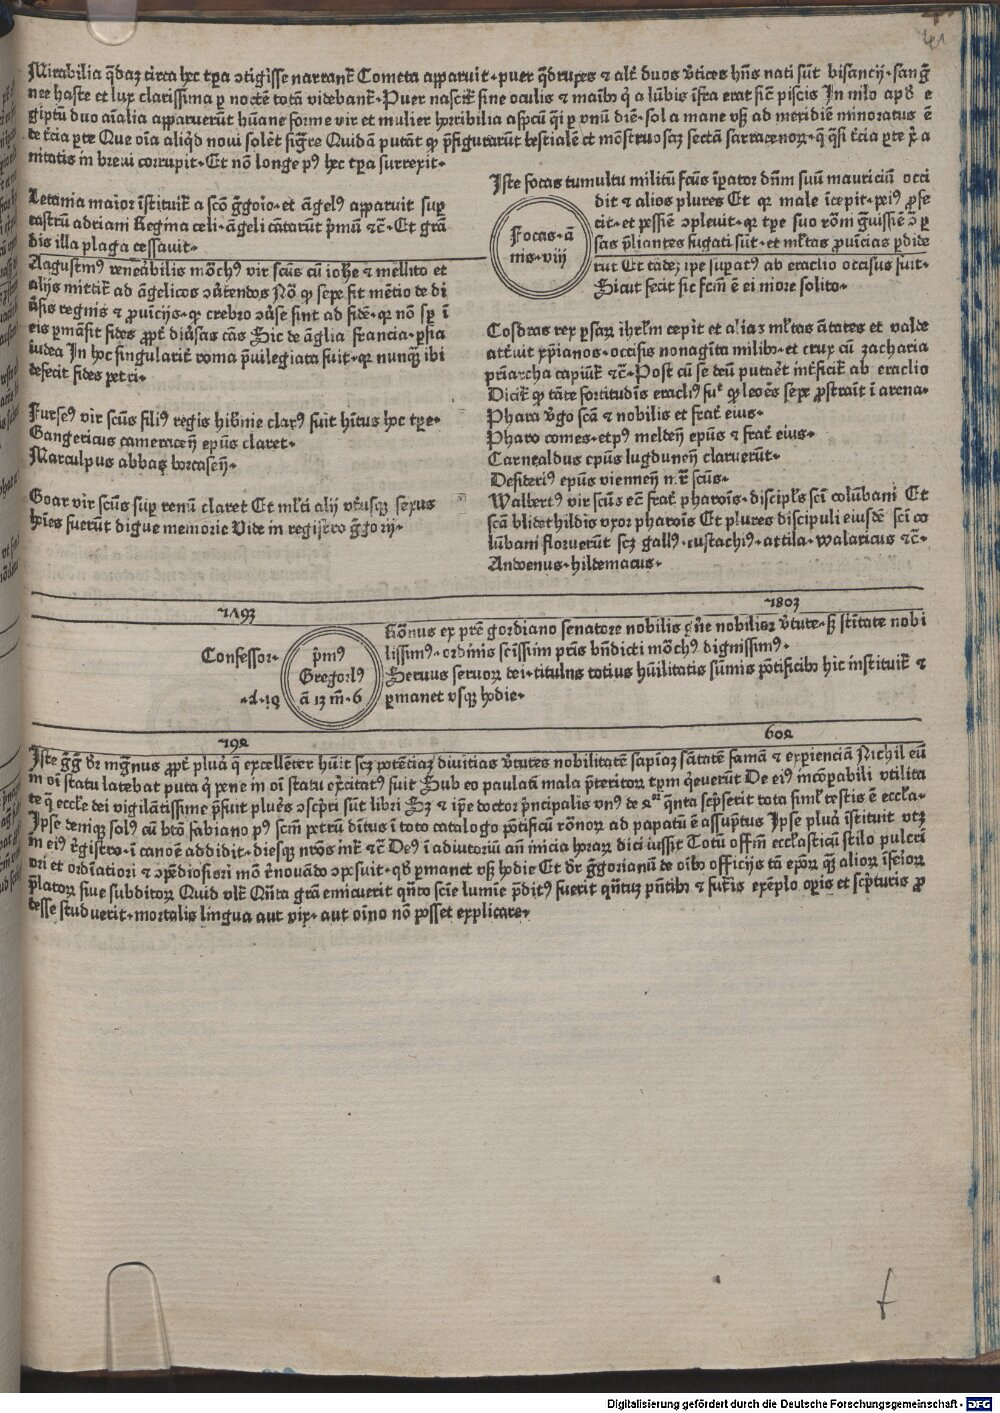 Mirabilia q̄daz circa hec tꝑa ↄtigisse narrant᷑ Cometa apparuit · puer q̄druxes ⁊ alt᷑ duos v̄tices hn̄s nati sūt bisancij · sanḡ
nee haste et lux clarissima ꝑ noctē totā videbant᷑ · Puer nascit᷑ sine oculis ⁊ maībꝰ q̇ a lūbis īfra erat sic̄ piscis In nilo apđ e
giptū duo aīalia apparuerūt hūane forme vir et mulier horribilia aspcū q̇i ꝑ vnū diē · sol a mane vsqꝫ ad meridiē minoratus ē
de t̄cia ꝑte Que oīa aliqd noui solēt sig̃re Quidā putāt ꝙ p̄figurarūt bestialē et mōstruosaꝫ sectā sarracenoꝝ · q̄ q̄si t̄cia ꝑte xp̄ia
nitatis in breui corrupit · Et nō longe pꝰ hec tꝑa surrexit ·
Letania maior īstituit᷑ a scō g̃goīo · et āgelꝰ apparuit suꝑ
castrū adriani Regina celi · āgeli cātarūt p̄mū ⁊c̄ · Et grā
dis illa plaga cessauit ·
Augustinꝰ venēabilis mōchꝰ vir scūs cū ioħe ⁊ mellito et
alijs mittit᷑ ad āgelicos ↄūtendos Nō ꝙ sepe fit mētio de di
ūsis regnis ⁊ ꝓuīcijs · ꝙ crebro ↄūse sint ad fidē · ꝙ nō sꝑ ī
eis ꝑmāsit fides ꝓpt᷑ diūsas cās Sic de āglia francia · ꝑsia
iudea In hoc singularit᷑ roma p̄uilegiata fuit · ꝙ nunqꝫ ibi
defecit fides petri ·
Furseꝰ vir scūs filiꝰ regis hib̄nie clarꝰ fuit hītus hoc tꝑe ·
Gangericus cameraceñ ep̄us claret ·
Marculpus abbas borcaseñ ·
Goar vir scūs suꝑ renū claret Et ml̄ti alij vt᷑usqꝫ sexus
hoīes fuerūt digne memorie Vide in registro g̃gorij ·
Iste focas tumultu militū fcūs īꝑator dn̄m suū mauriciū occi
dit ⁊ alios plures Et ꝙ male īcepit · peiꝰ ꝓfe
cit · et pessīe ↄpleuit · ꝙ tꝑe suo rōni g̃uissīe ꝯ ꝑ
sas p̄liantes fugati sūt · et ml̄tas ꝓuīcias ꝑdide
rūt Et tādeꝫ ip̄e suꝑatꝰ ab eraclio occisus fuit ·
Sicut fecit sic fcm̄ ē ei more solito ·
Focas · ā
nis · viij
Cosdras rex ꝑsaꝝ ihrl̄m cepit et aliaꝫ ml̄tas c̄tates et valde
att᷑uit xp̄ianos · occisis nonagīta milibꝰ · et crux cū zacharia
pr̄iarcha capiūt᷑ ⁊c̄ · Post cū se deū putaēt īt᷑ficit᷑ ab eraclio
Dicit᷑ ꝙ tāte fortitudīs eracliꝰ fuᵗ ꝙ leōēs sepe ꝓstrauit ī arena ·
Phara v̄go scā ⁊ nobilis et frat᷑ eius ·
Pharo comes · etpꝰ meldeñ ep̄us ⁊ frat᷑ eius ·
Carnealdus ep̄us lugduneñ claruerūt ·
Desideriꝰ ep̄us vienneñ m̄r̄ scūs ·
Walbertꝰ vir scūs ec̄ frat᷑ pharoīs · discipl̄s scī colūbani Et
scā blidethildis vxor pharoīs Et plures discipuli eiusdē scī co
lūbani floruerūt scꝫ gallꝰ · eustachiꝰ · attila · walaricus ⁊c̄ ·
Andoenus · hildemacus ·
1803
Confessor ·
p̄mꝰ
Gregoriꝰ
ā 13 m̄ · 6
Rōnus ex pr̄e gordiano senatore nobilis gn̄e nobilioꝝ v̄tute · sꝫ sc̄titate nobi
lissimꝰ · ordinis sc̄issim pr̄is bn̄dicti mōchꝰ dignissimꝰ ·
Seruus seruoꝝ dei · titulus totius hūilitatis sūmis pōtificibꝰ hic instituit᷑ ⁊
ꝑmanet vsqꝫ hodie ·
792
602
Iste g̃g̃ dr̄ mg̃nus ꝓpt᷑ pluā q̄ excellēter hūit scꝫ potētiaꝫ diuitias v̄tutes nobilitatē sapiaꝫ sātatē famā ⁊ expienciā Nichil eū
in oī statu latebat puta q̇ pene in oī statu ex̄citatꝰ fuit Sub eo paulatī mala p̄teritoꝝ tꝑm q̇euerūt De eiꝰ incōꝑabili vtilita
te q̄ eccl̄e dei vigilātissime p̄fuit pluēs ↄscpti sūt libri Sꝫ ⁊ ip̄e doctor p̄ncipalis vnꝰ de 4ᵒʳ q̄nta sc̄pserit tota siml̄ testis ē eccl̄a ·
Ipse deniqꝫ solꝰ cū btō fabiano pꝰ scm̄ petrū dītus ī toto catalogo pōtificū rōnoꝝ ad papatū ē assūptus Ipse pluā īstituit vtꝫ
in eiꝰ r̄gistro · ī canoē addidit · diesqꝫ nr̄os īnt᷑ ⁊c̄ Deꝰ ī adiutoriū añ inicia horaꝝ dici iussit Totū offm̄ eccl̄asticū stilo pulcrī
ori et ordīatiori ⁊ ↄpēdiosiori mō r̄nouādo ↄpsuit · qđ ꝑmanet vsqꝫ hodie Et dr̄ g̃gorianū de oībꝰ officijs tā ep̄oꝝ qꝫ alioꝝ īfcioꝝ
p̄latoꝝ siue subditoꝝ Quid vlt᷑ Qn̄ta grā emicuerit qn̄to scīe lumīe p̄ditꝰ fuerit qn̄tuꝫ pn̄tibꝰ ⁊ fut᷑is exēplo opīs et scp̄turis ꝓ
desse studuerit · mortalis lingua aut vix · aut oīno nō posset explicare ·
Digitalisierung gefördert durch die Deutsche Forschungsgemeinschaft - DFG